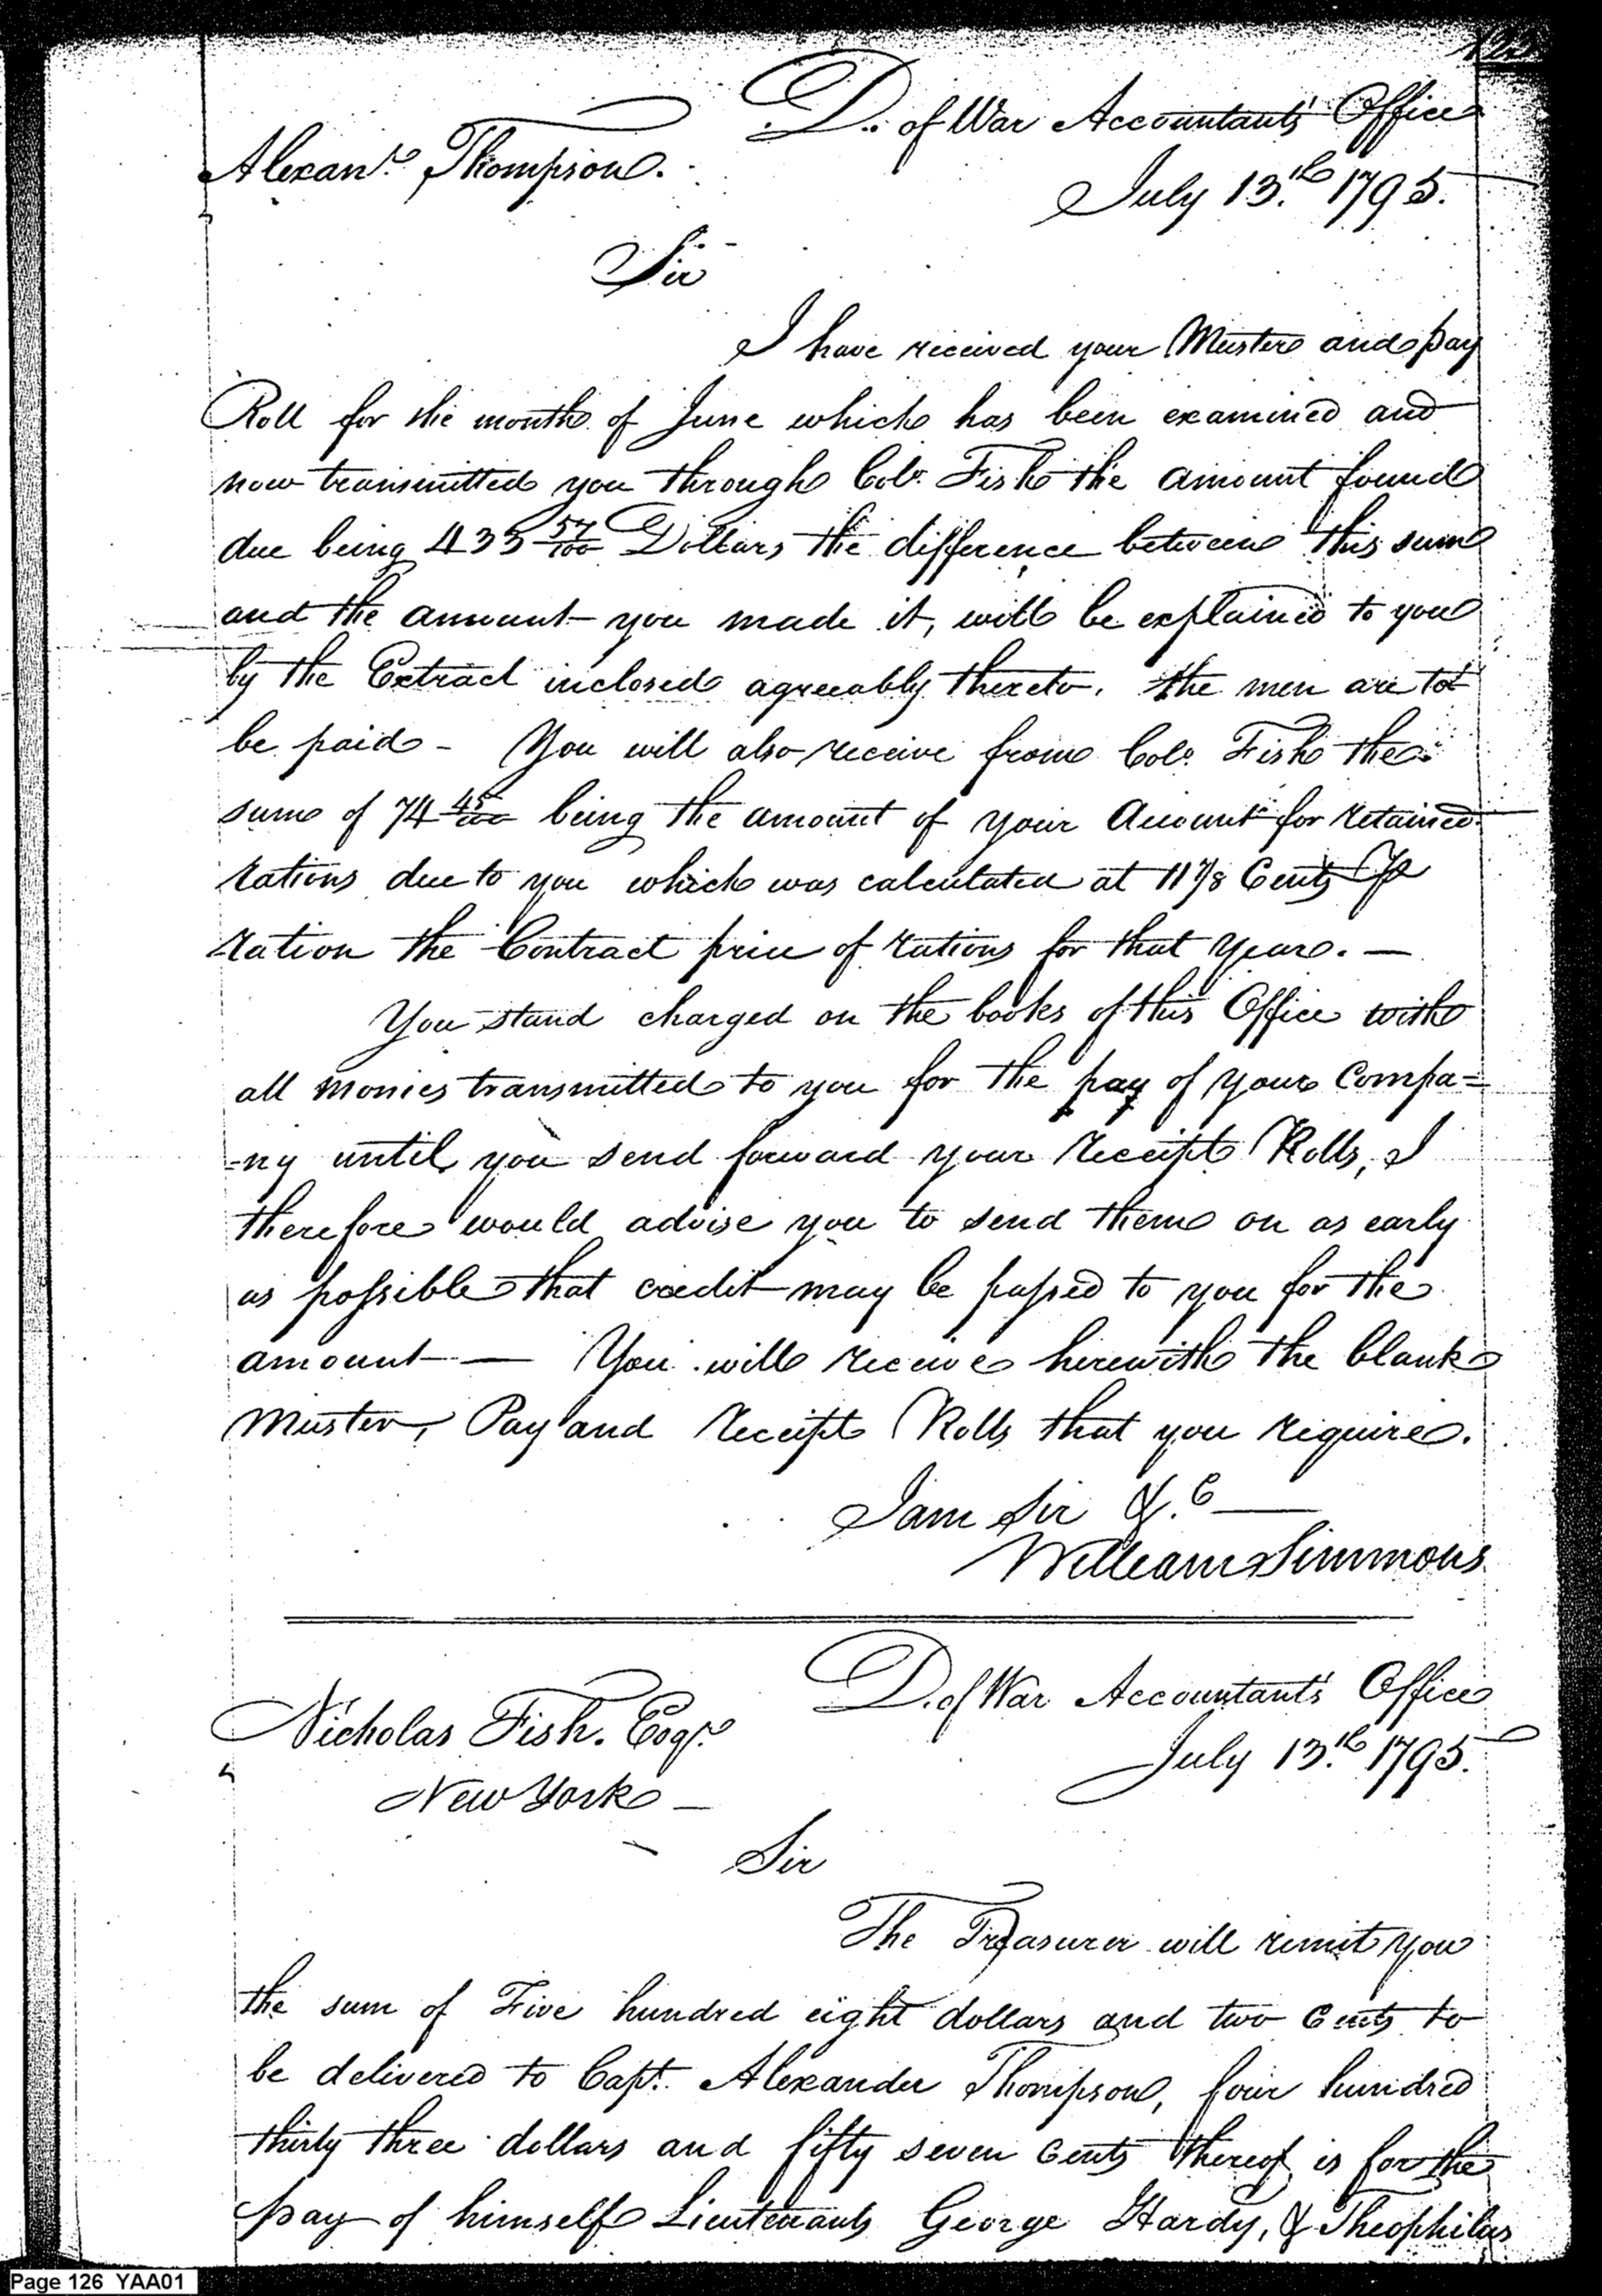 D. of War Accountants Office
Alexanr. Thompson.
July 13.th 1795.
Sir
I have received your Muster and pay
Roll for the month of June which has been examined and
now transmitted you through Colo. Fish the amount found
due being 433 57/100 Dollars the difference between this sum
and the amount you made it, will be explained to you
by the Extract inclosed agreeably thereto. the men are to
be paid - You will also receive from Colo. Fish the
sum of 74 45/100 being the amount of your Account for retained
rations due to you which was calculated at 11 7/8 Cents
ration the Contract price of rations for that year. —
You stand charged on the books of this Office with
all monies transmitted to you for the pay of your Compa=
=ny until you send forward your receipt Rolls, I
therefore would advise you to send them on as early
as possible that credit may be passed to you for the
amount — You will receive herewith the blank
Muster, Pay and receipt Rolls that you require.
I am Sir &.c —
William Simmons
D. of War Accountant's Office
Nicholas Fish. Esqr.
July 13.th 1795.
New York —
Sir
The Treasurer will remit you
the sum of Five hundred eight dollars and two Cents to
be delivered to Capt. Alexander Thompson, four hundred
thirty three dollars and fifty seven Cents thereof is for the
pay of himself Lieutenants George Hardy, & Theophilus
Page 126 YAA01